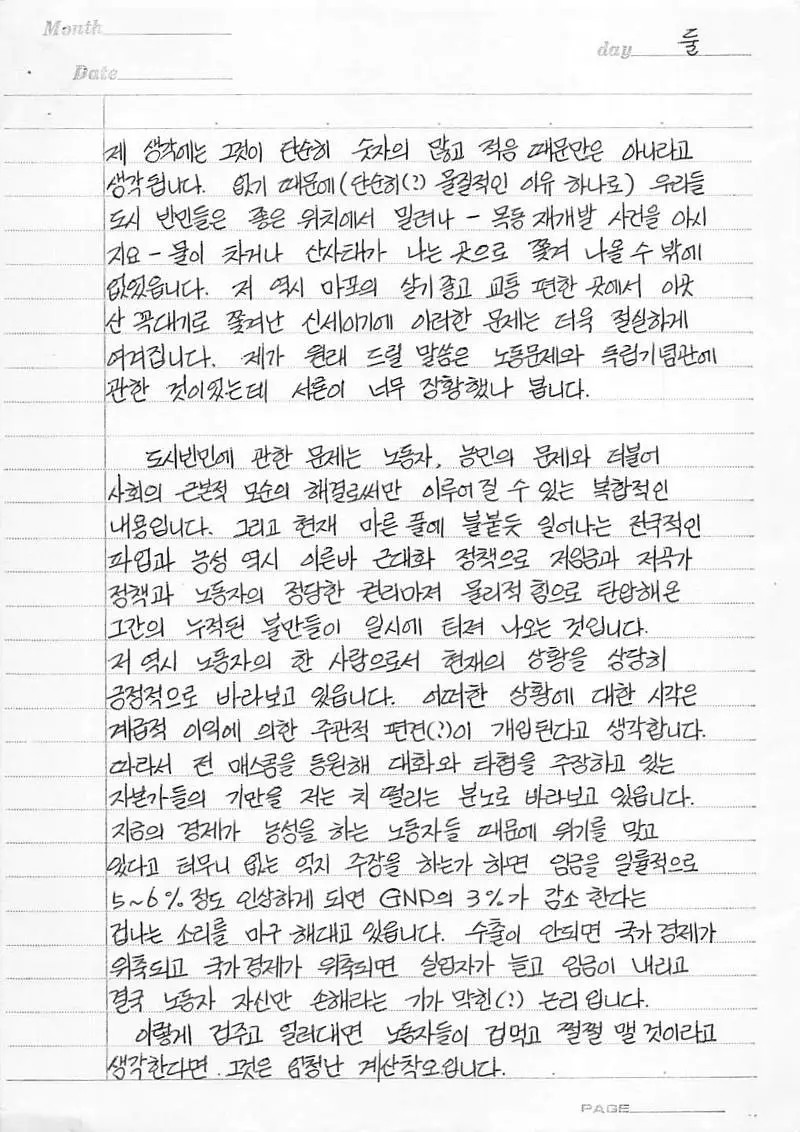 Month
day 둘
Date
제 생각에는 그것이 단순히 숫자의 많고 적음 때문만은 아니라고
생각됩니다. 없기 때문에(단순히(?) 물질적인 이유 하나로) 우리들
도시 빈민들은 좋은 위치에서 밀려나 - 목동 재개발 사건을 아시
지요 - 물이 차거나 산사태가 나는 곳으로 쫓겨 나올 수 밖에
없었읍니다. 저 역시 마포의 살기 좋고 교통 편한 곳에서 이곳
산 꼭대기로 쫓겨난 신세이기에 이러한 문제는 더욱 절실하게
여겨집니다. 제가 원래 드릴 말씀은 노동문제와 독립기념관에
관한 것이었는데 서론이 너무 장황했나 봅니다.
도시빈민에 관한 문제는 노동자, 농민의 문제와 더불어
사회의 근본적 모순의 해결로써만 이루어 질 수 있는 복합적인
내용입니다. 그리고 현재 마른 풀에 불붙듯 일어나는 전국적인
파업과 농성 역시 이른바 근대화 정책으로 저임금과 저곡가
정책과 노동자의 정당한 권리마져 물리적 힘으로 탄압해온
그간의 누적된 불만들이 일시에 터져 나오는 것입니다.
저 역시 노동자의 한 사람으로서 현재의 상황을 상당히
긍정적으로 바라보고 있읍니다. 어떠한 상황에 대한 시각은
계급적 이익에 의한 주관적 편견(?)이 개입된다고 생각합니다.
따라서 전 매스콤을 동원해 대화와 타협을 주장하고 있는
자본가들의 기만을 저는 치 떨리는 분노로 바라보고 있읍니다.
지금의 경제가 농성을 하는 노동자들 때문에 위기를 맞고
있다고 터무니 없는 억지 주장을 하는가 하면 임금을 일률적으로
5~6%정도 인상하게 되면 GNP의 3%가 감소 한다는
겁나는 소리를 마구 해대고 있읍니다. 수출이 안되면 국가경제가
위축되고 국가경제가 위축되면 실업자가 늘고 임금이 내리고
결국 노동자 자신만 손해라는 기가 막힌(?) 논리입니다.
이렇게 겁주고 얼러대면 노동자들이 겁먹고 쩔쩔 맬 것이라고
생각한다면 그것은 엄청난 계산착오입니다.
PAGE